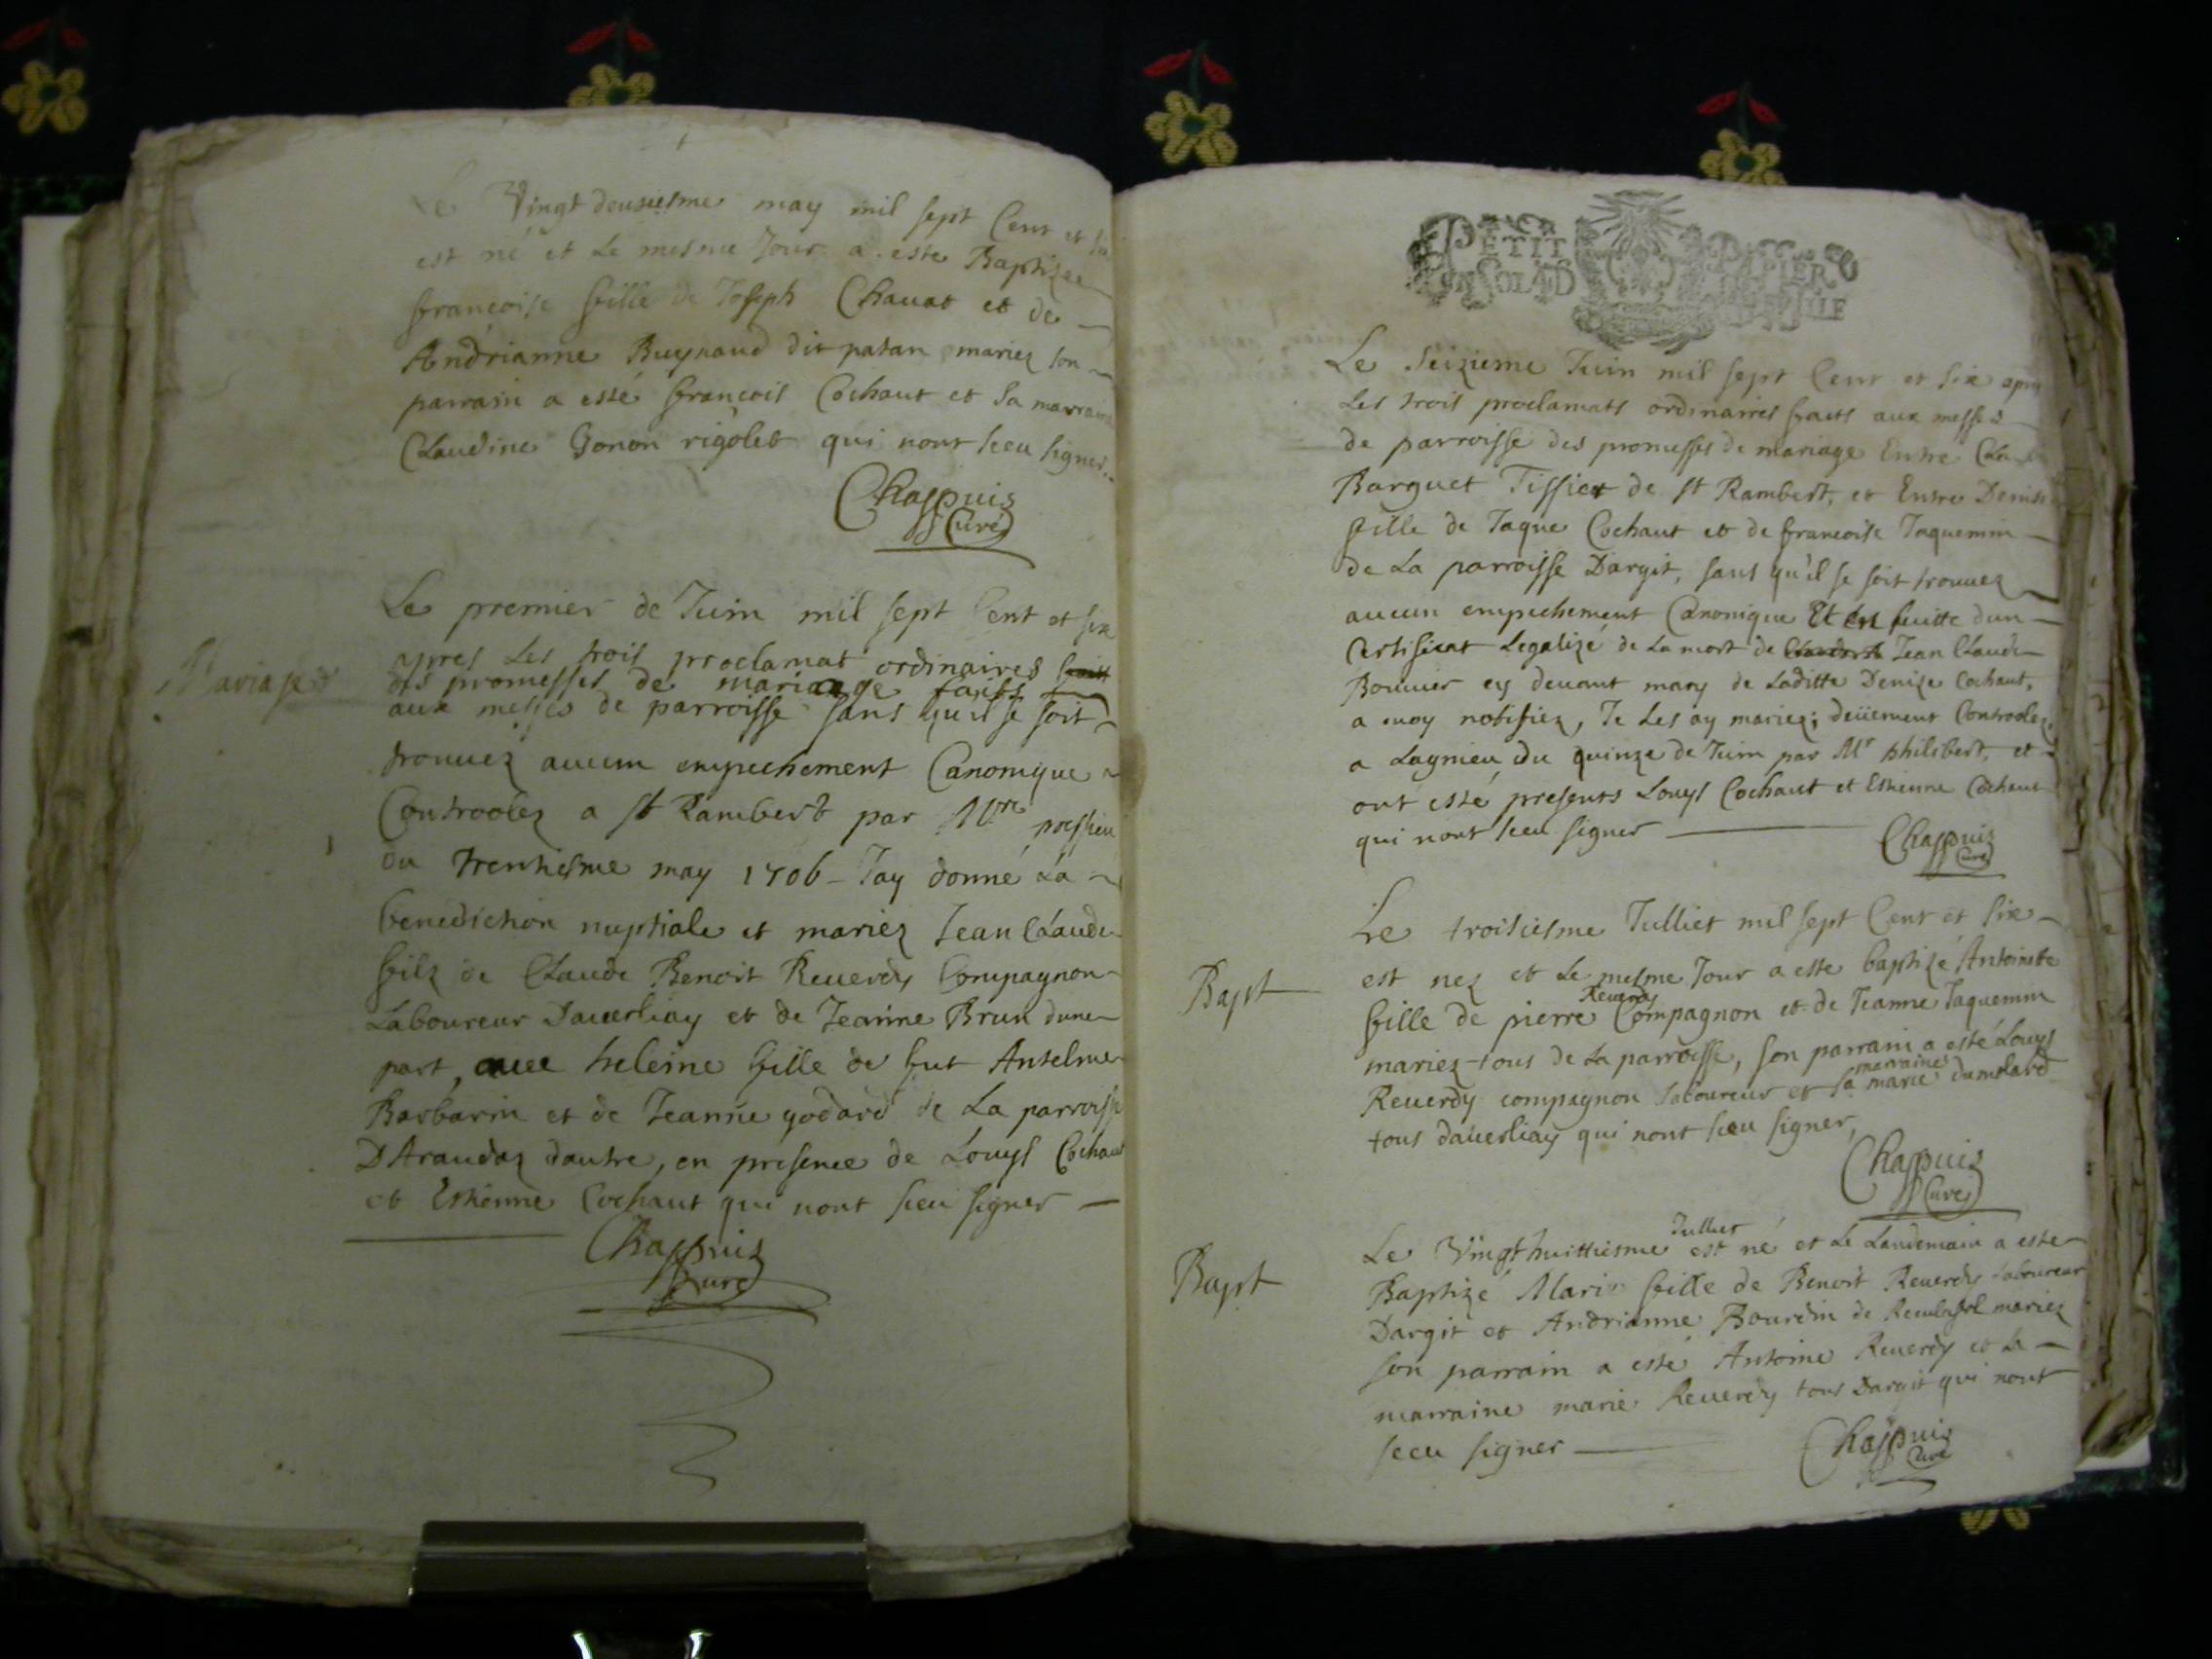 Le Vingt deusiesme may mil sept Cent et six
est né et Le mesme Jour a este Baptizee
francoise fille de Joseph Chavat et de
Andrianne Buynaud dit patan mariez son
parrain a esté francois Cochaut et sa marraine
Claudine Gonon rigolet qui nont sceu signer
Chappuis
Curé
Le premier de Juin mil sept Cent et six
Mariage
apres Les trois proclamat ordinaires
des promesses de mariage faits
aux messes de parroisse sans qu'il se soit
trouuez aucun empechement Canonique
Controolez a st Rambert par Mre
du trentiesme may 1706 - Jay donné La
benediction nuptiale et mariez Jean Claude
filz de Claude Benoit Reuerdy Compagnon
Laboureur Dauerliay et de Jeanne Brun dune
part, auec heleine fille de fut Antelme
Barbarin et de Jeanne godard de La parroisse
DArandaz dautre, en presence de Louys Cochaut
et Estienne Cochaut qui nont sceu signer
Chappuis
Curé
PETIT PAPIER
Le Seizieme Juin mil sept Cent et six apres
Les trois proclamats ordinaires faits aux messes
de parroisse des promesses de mariage Entre
Barguet Tissier de st Rambert, et Entre Denise
fille de Jaque Cochaut et de francoise Jaquemin
de La parroisse Dargit, sans qu'il se soit trouuez
aucun empechement Canonique Et en suitte dun
Certificat Legalizé de La mort de Jean Claude
Bouuier cy deuant mary de Laditte Denize Cochaut,
a moy notifiez, Je Les ay mariez; deüement Controolez
a Lagnieu du quinze de Juin par Mr philibert, et
ont esté presents Louys Cochaut et Estienne Cochaut
qui nont sceu signer
Chappuis
Curé
Le troisiesme Julliet mil sept Cent et six
Bapt
est nez et Le mesme Jour a este baptizé Antoinette
Reuerdy
fille de pierre Compagnon et de Jeanne Jaquemin
mariez tous de La parroisse, son parrain a esté Louys
marraine
Reuerdy compagnon Laboureur et sa marie dumolard
tous dauerliay qui nont sceu signer,
Chappuis
Curé
Julliet
Le Vingt huittiesme est né et Le Landemain a este
Bapt
Baptizé Marie fille de Benoit Reuerdy Laboureur
Dargit et Andrianne Bourdin de mariez
son parrain a esté Antoine Reuerdy et La
marraine marie Reuerdy tous Dargit qui nont
sceu signer
Chappuis
Curé